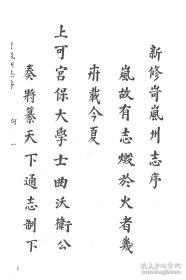 新修岢嵐州志序
嵐故有志燬於火者幾
卅載今夏
上可宮保大學士曲沃衛公
奏將纂天下通志制下
岢嵐州志序 何 一